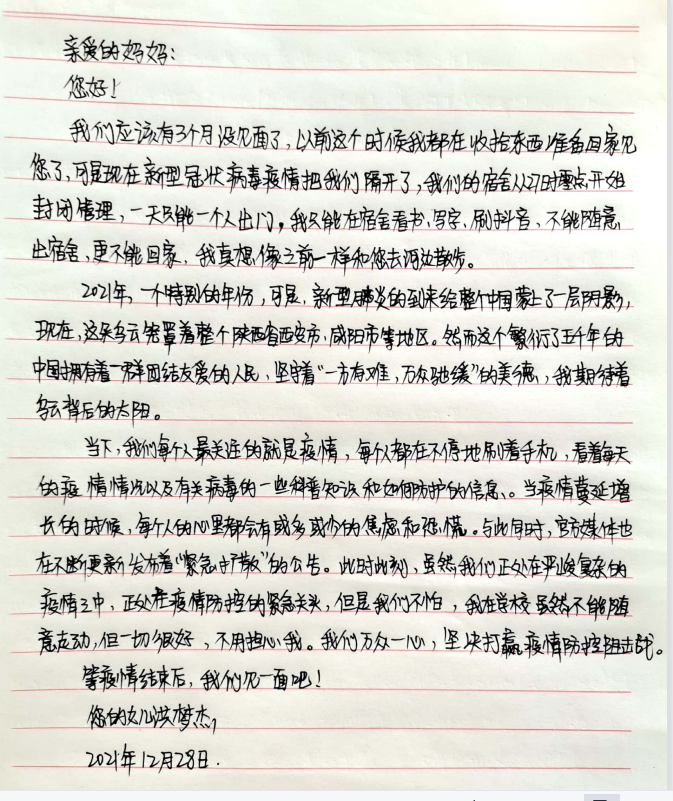 亲爱的妈妈：
您好！
我们应该有3个月没见面了，以前这个时候我都在收拾东西准备回家见
您了，可是现在新型冠状病毒疫情把我们隔开了，我们的宿舍从27时零点开始
封闭管理，一天只能一个人出门，我只能在宿舍看书、写字、刷抖音、不能随意
出宿舍，更不能回家，我真想像之前一样和您去河边散步。
2021年，一个特别的年份，可是，新型肺炎的到来给整个中国蒙上了一层阴影，
现在，这朵乌云笼罩着整个陕西省西安市、咸阳市等地区。然而这个繁衍了五千年的
中国拥有着一群团结友爱的人民，坚守着“一方有难，万众驰缓”的美德，我期待着
乌云背后的太阳。
当下，我们每个人最关注的就是疫情，每个人都在不停地刷着手机，看着每天
的疫情情况以及有关病毒的一些科普知识和如何防护的信息。当疫情蔓延增
长的时候，每个人的心里都会有或多或少的焦虑和恐慌。与此同时，官方媒体也
在不断更新发布着“紧急扩散”的公告。此时此刻，虽然我们正处在严峻复杂的
疫情之中，正处在疫情防控的紧急关头，但是我们不怕，我在学校虽然不能随
意走动，但一切很好，不用担心我。我们万众一心，坚决打赢疫情防控阻击战。
等疫情结束后，我们见一面吧！
您的女儿洪梦杰，
2021年12月28日.